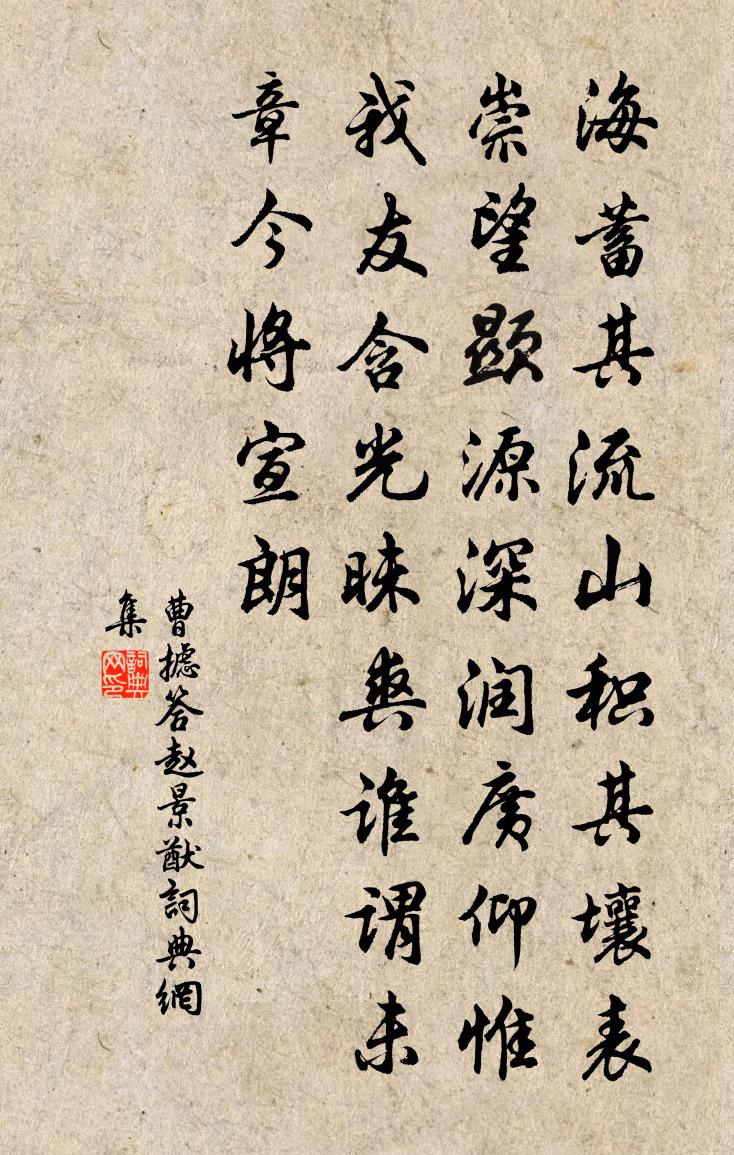 海蓄其流山积其壤表
崇望顕源深润廣仰惟
我友含光昧爽谁谓未
章今将宣朗
曹摅答赵景猷詞典網
集
詞典
网印